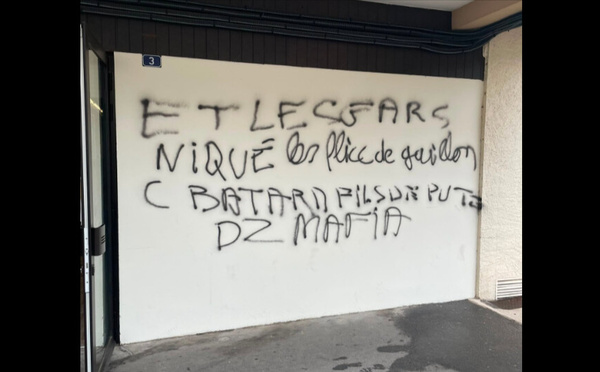 3
ET LES GARS
NIQUÉ les flicc de gaillon
C BATARD FILS DE PUTE
DZ MAFIA